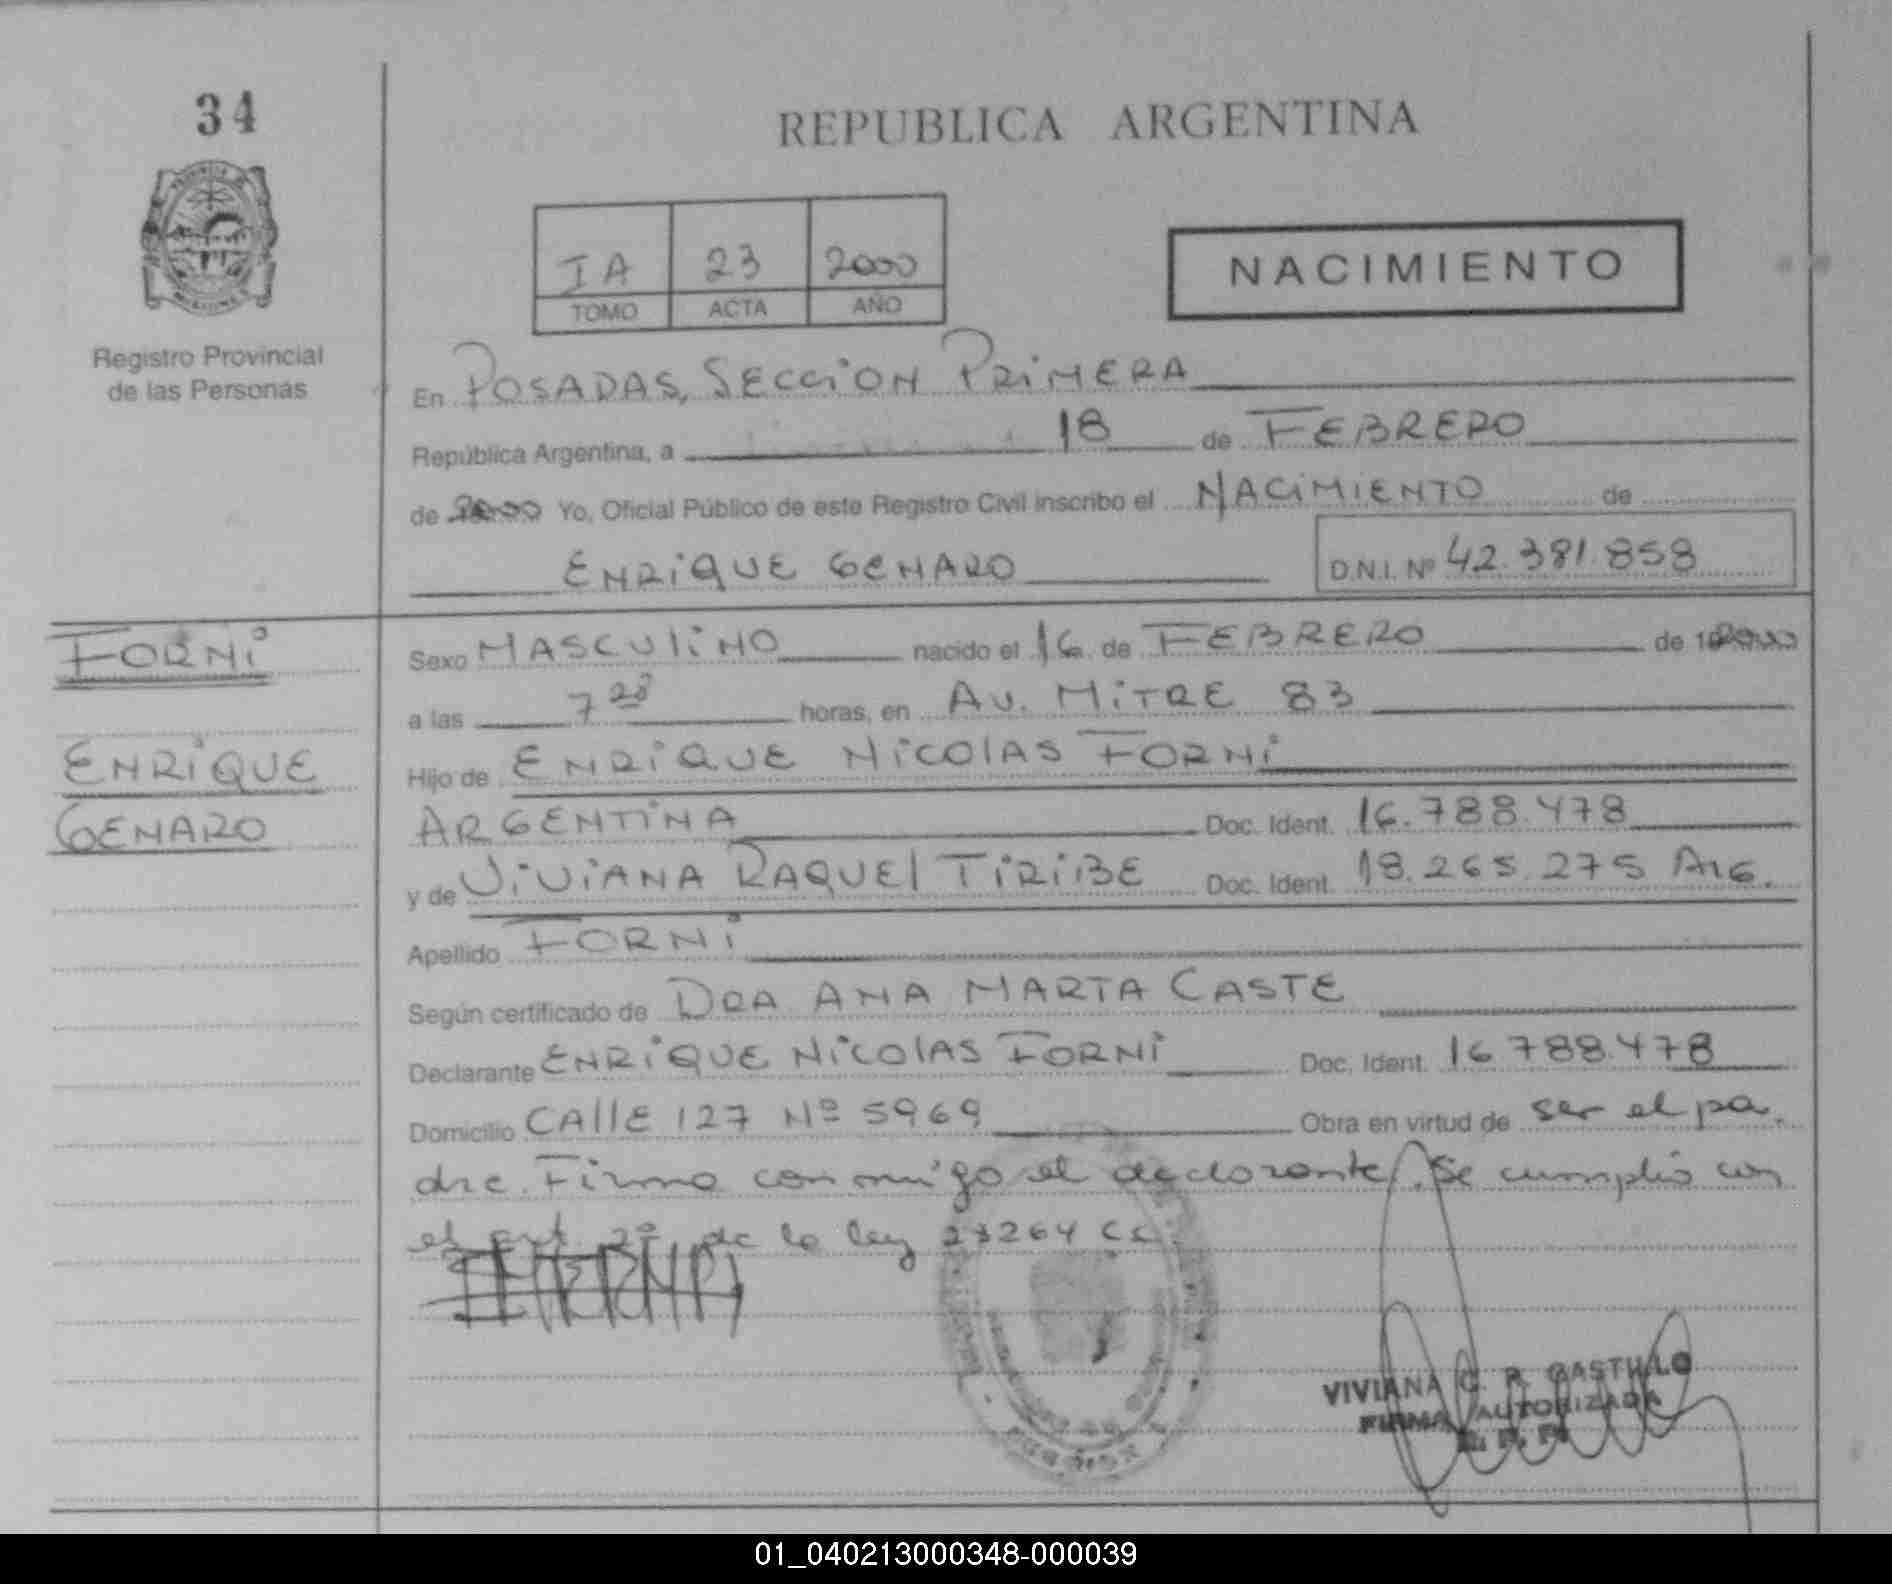 34
REPUBLICA ARGENTINA
IA 23 2000
TOMO ACTA AÑO
NACIMIENTO
Registro Provincial
de las Personas
En POSADAS, SECCION PRIMERA
República Argentina, a 18 de FEBRERO
de 2000 Yo, Oficial Público de este Registro Civil inscribo el NACIMIENTO de
ENRIQUE GENARO D.N.I. Nº 42.381.858
FORNI
ENRIQUE
GENARO
Sexo MASCULINO nacido el 16 de FEBRERO de 2000
a las 7 28 horas, en AV. MITRE 83
Hijo de ENRIQUE NICOLAS FORNI
ARGENTINA Doc. Ident. 16.788.478
y de VIVIANA RAQUEL TIRIBE Doc. Ident. 18.265.275 ARG.
Apellido FORNI
Según certificado de DRA ANA MARTA CASTE
Declarante ENRIQUE NICOLAS FORNI Doc. Ident. 16 788.478
Domicilio CALLE 127 Nº 5969 Obra en virtud de ser el pa
dre. Firma conmigo el declarante. Se cumplió con
el art 2º de la ley
VIVIANA C. R. CASTILLO
FIRMA AUTORIZADA
01_040213000348-000039